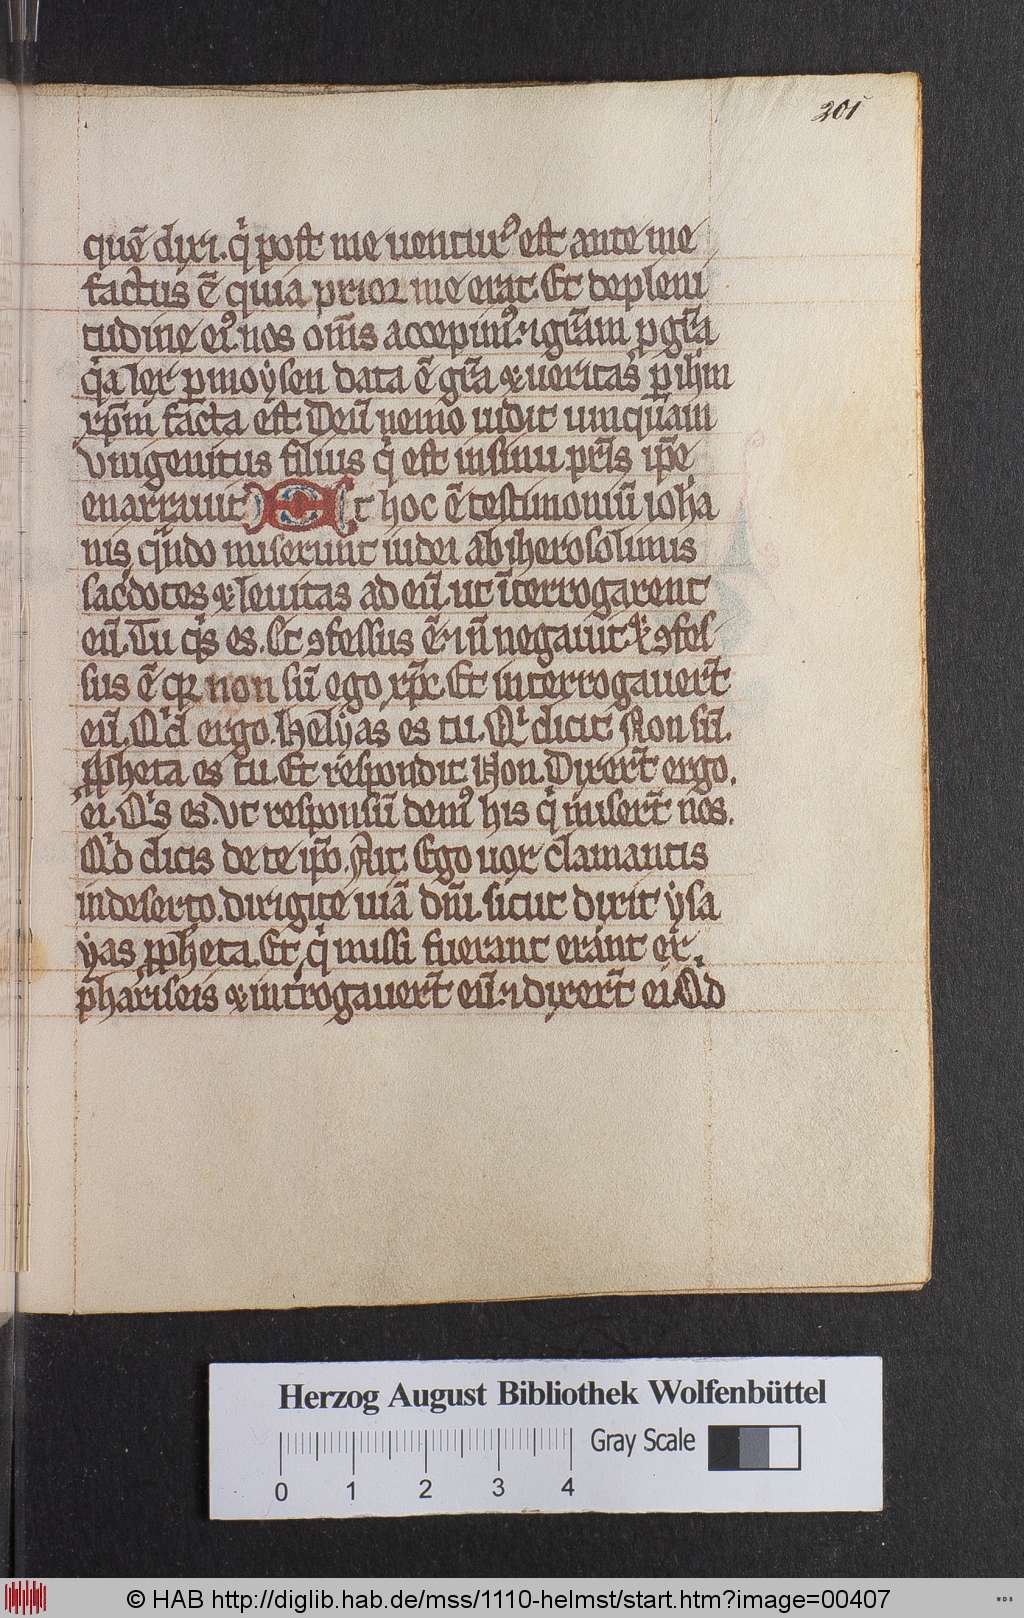 201
quē dixi. q̇ post me uentur᷒ est ante me
factus ē quia prior me erat. Et de pleni
tudine ei᷒ nos om̄s accepim᷒ ⁊ gr̄am p gr̄a
q̇a lex p moysen data ē gr̄a & ueritas p ihm
xp̄m facta est. Deū nemo uidit umquam
Vnigenitus filius q̇ est in sinu pr̄is ip̄e
enarrauit Et hoc ē testimoniū ioha
nis, qn̄do miserunt iudei ab iherosolimis
sac̄dotes & leuitas ad eū. ut īterrogarent
eū. Tu qⁱs es. Et ꝯfessus ē. ⁊ n̄ negauit. & ꝯfes
sus ē qꝛ non sū ego xp̄c. Et interrogauer̄t
eū. Qⁱd ergo. Helyas es tu. Et dicit Non sū.
ꝓpheta es tu. Et respondit Non. Dixer̄t ergo.
ei. Qⁱs es. Vt responsū dem᷒ his q̇ miser̄t nos.
Qⁱd dicis de te ip̄o. Ait. Ego uox clamantis
in deserto. dirigite uiā dn̄i. sicut dixit ysa
yas ꝓpheta. Et q̇ missi fuerant erant ex
phariseis & int̄rogauer̄t eū. ⁊ dixer̄t ei Qⁱd
Herzog August Bibliothek Wolfenbüttel
Gray Scale
0 1 2 3 4
© HAB http://diglib.hab.de/mss/1110-helmst/start.htm?image=00407